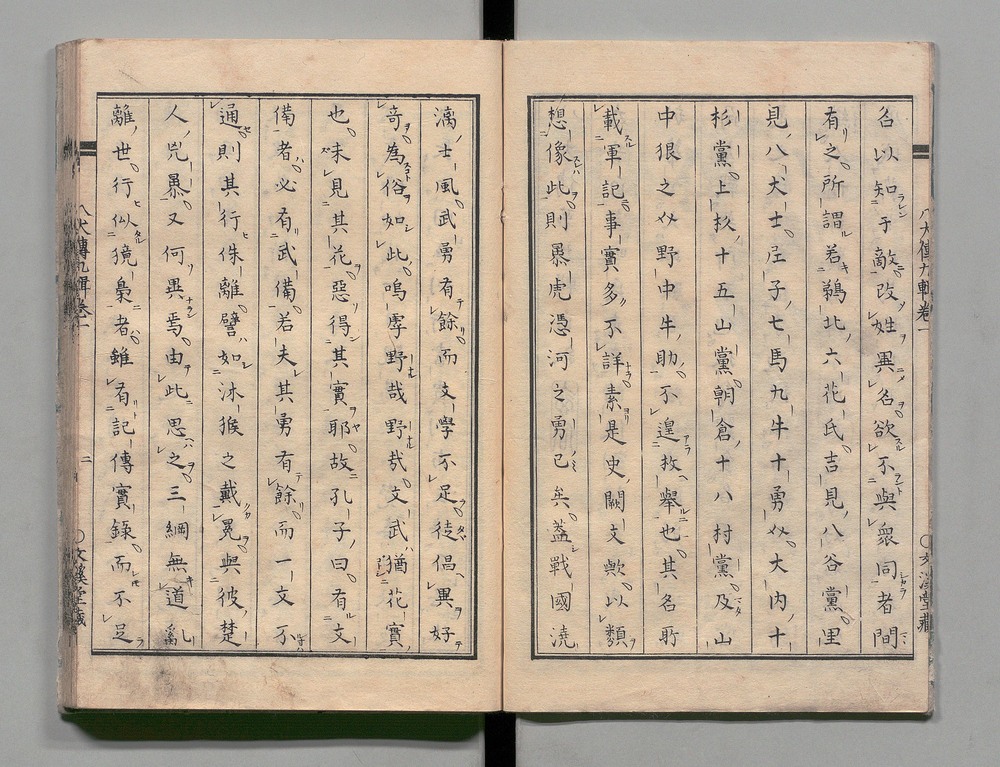 名以知于敵改姓異名欲不與衆同者間
有之所謂若鵜北六花氏吉見八谷黨里
見八犬士尼子七馬九牛十勇似大内十
杉黨上杦十五山黨朝倉十八村黨及山
中狠之似野中牛助不遑枚舉也其名所
載軍記事實多不詳素是史闕文歟以類
想像此則暴虎憑河之勇已矣葢戰國澆
漓士風武勇有餘而文學不足徒倡異好
奇為俗如此嗚虖野哉野哉文武猶花實
也未見其花惡得其實耶故孔子曰有文
備者必有武備若夫其勇有餘而一文不
通則其行侏離譬如沐猴之戴冕與彼楚
人兕暴又何異焉由此思之三綱無道
離世行似獍梟者雖有記傳實錄而不足
八犬傳九輯卷一
文溪堂藏
八犬傳九輯卷一
二
文溪堂藏